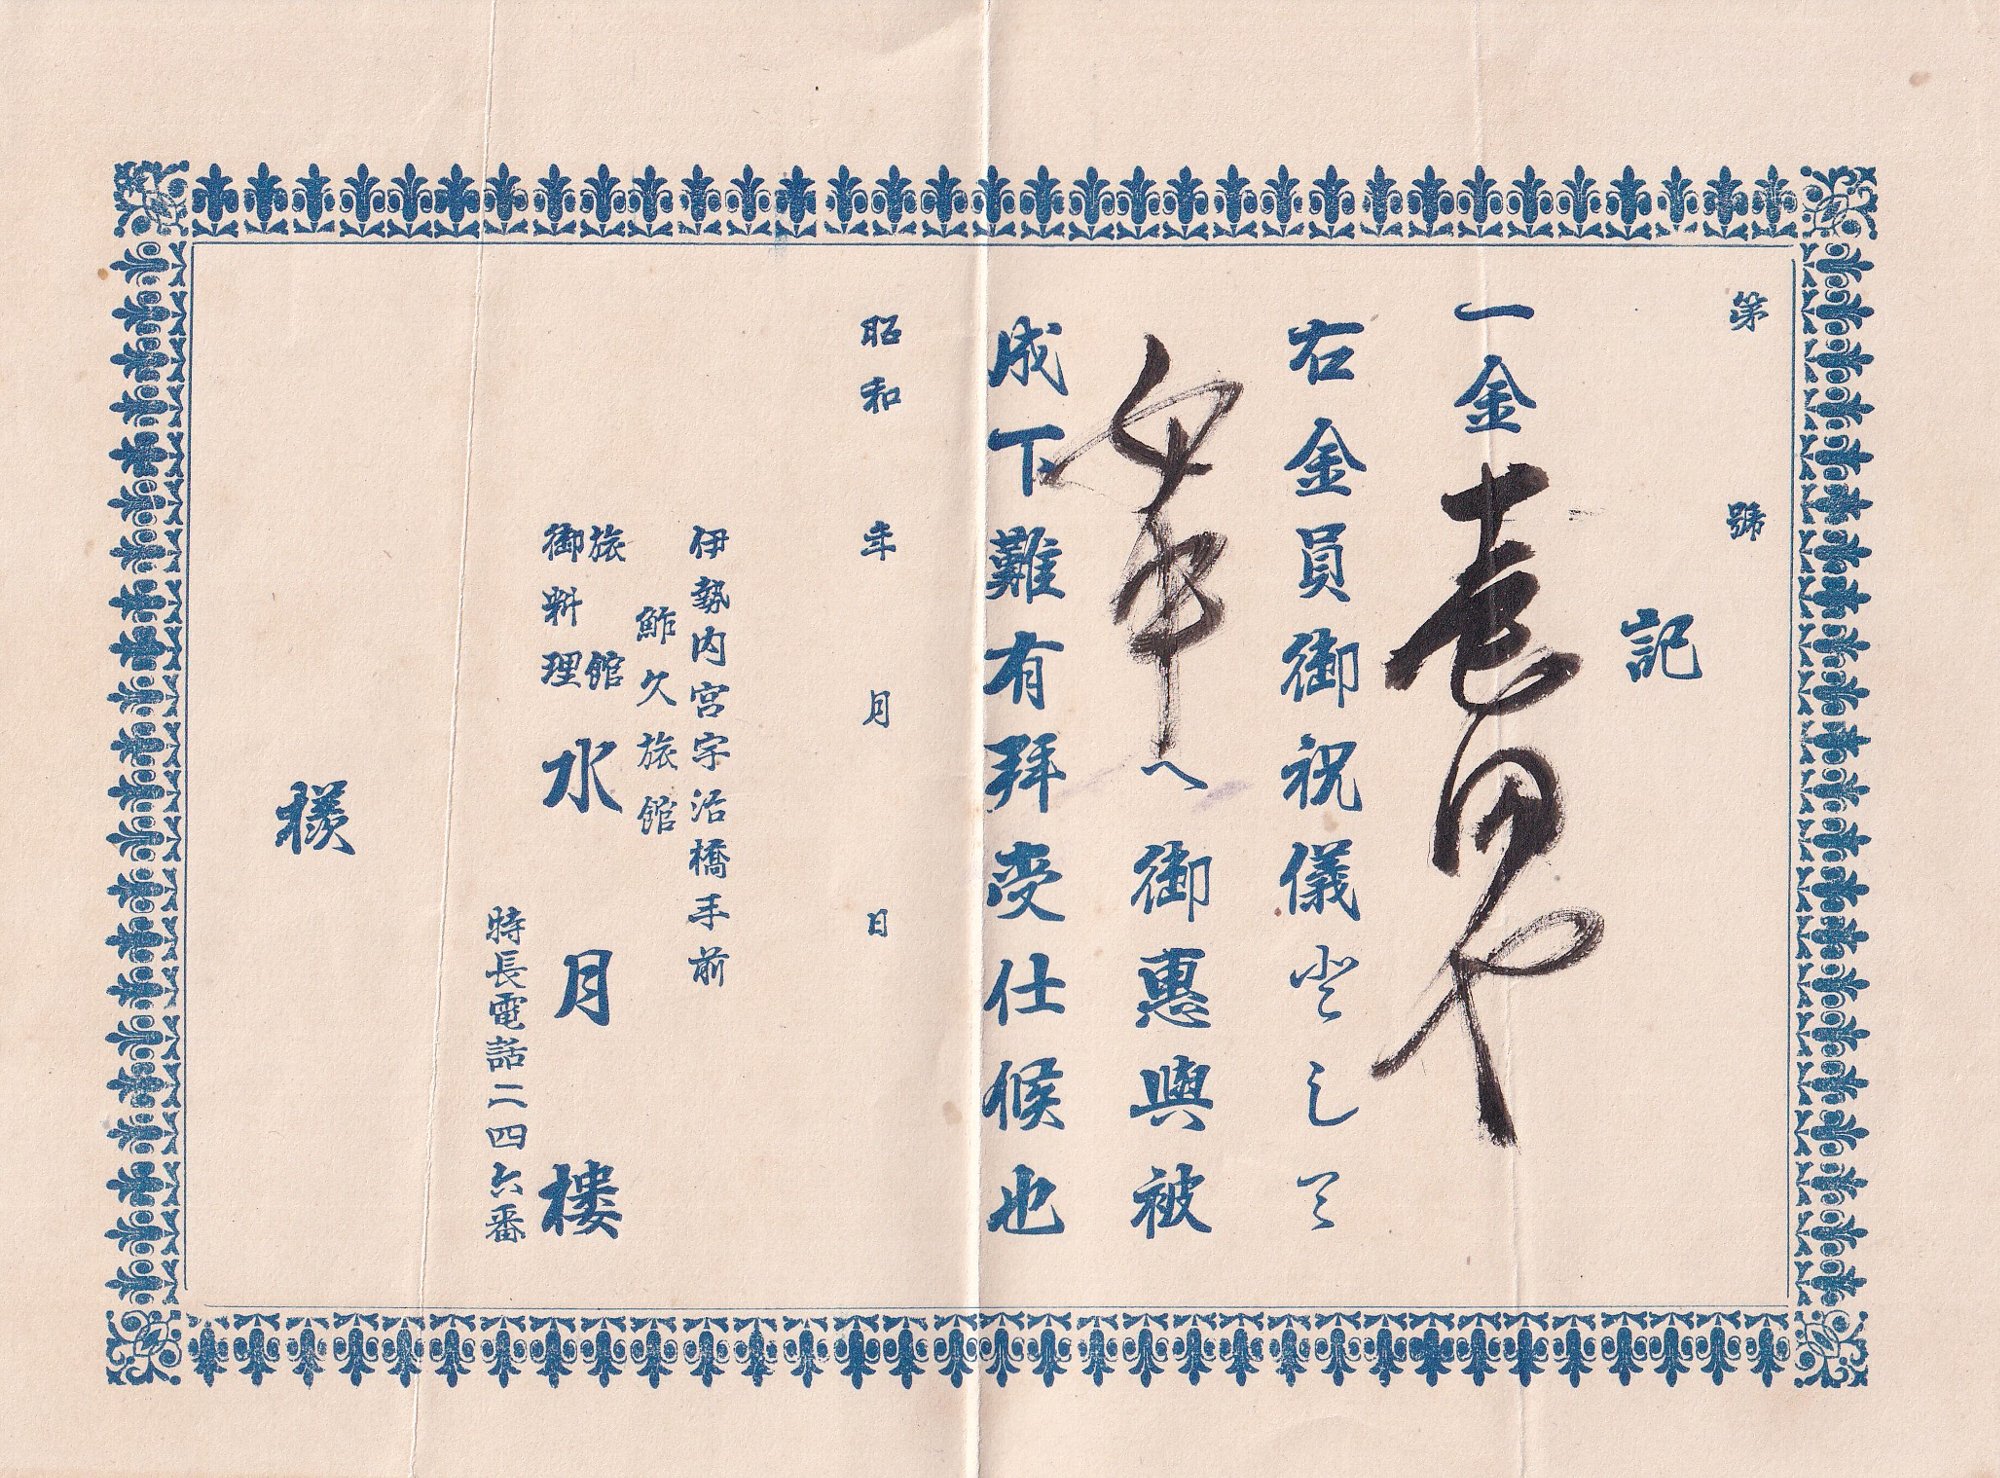 第 號
記
一金壹円也
右金員御祝儀として
女中へ御惠與被
成下難有拜受仕候也
昭和 年 月 日
伊勢内宮宇治橋手前
鮓久旅館
旅館
御料理
水月樓
特長電話二四六番
樣